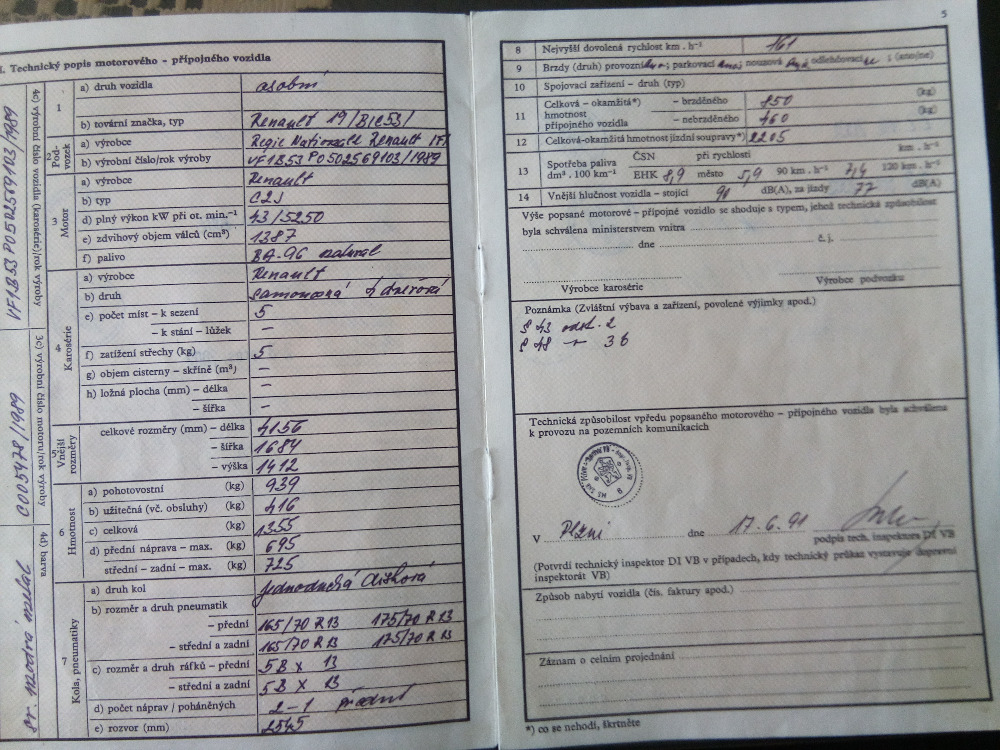 I. Technický popis motorového – přípojného vozidla
4c) výrobní číslo vozidla (karosérie)/rok výroby
VF1B53P0502569103/1989
3c) výrobní číslo motoru/rok výroby
C005478/1989
4d) barva
modrá
1
a) druh vozidla osobní
b) tovární značka, typ Renault 19/B1E53/
2 Pod-vozek
a) výrobce Regie Nationale Renault
b) výrobní číslo/rok výroby VF1B53P0502569103/1989
3 Motor
a) výrobce Renault
b) typ C2J
d) plný výkon kW při ot. min.⁻¹ 43/5250
e) zdvihový objem válců (cm³) 1387
f) palivo BA-96 natural
4 Karosérie
a) výrobce Renault
b) druh samonosná dveřová
e) počet míst – k sezení 5
– k stání – lůžek –
f) zatížení střechy (kg) 5
g) objem cisterny – skříně (m³) –
h) ložná plocha (mm) – délka –
– šířka –
5 Vnější rozměry
celkové rozměry (mm) – délka 4156
– šířka 1684
– výška 1412
6 Hmotnost
a) pohotovostní (kg) 939
b) užitečná (vč. obsluhy) (kg) 416
c) celková (kg) 1355
d) přední náprava – max. (kg) 695
střední – zadní – max. (kg) 725
7 Kola, pneumatiky
a) druh kol jednoduchá disková
b) rozměr a druh pneumatik
– přední 165/70 R13 175/70 R13
– střední a zadní 165/70 R13 175/70 R13
c) rozměr a druh ráfků – přední 5B x 13
– střední a zadní 5B x 13
d) počet náprav / poháněných 2-1 přední
e) rozvor (mm) 2545
5
8 Nejvyšší dovolená rychlost km . h⁻¹ 161
9 Brzdy (druh) provozní ; parkovací ano; nouzová odlehčovací ne ; (ano/ne)
10 Spojovací zařízení – druh (typ)
11 Celková – okamžitá*) – brzděného 850 (kg)
hmotnost
přípojného vozidla – nebrzděného 460 (kg)
12 Celková-okamžitá hmotnost jízdní soupravy*) 2205
13 Spotřeba paliva ČSN při rychlosti km . h⁻¹
dm³ . 100 km⁻¹ EHK 8,9 město 5,9 90 km . h⁻¹ 7,4 120 km . h⁻¹
14 Vnější hlučnost vozidla – stojící dB(A), za jízdy 77 dB(A)
Výše popsané motorové – přípojné vozidlo se shoduje s typem, jehož technická způsobilost
byla schválena ministerstvem vnitra
dne č. j.
Výrobce karosérie Výrobce podvozku
Poznámka (Zvláštní výbava a zařízení, povolené výjimky apod.)
§ 43 odst. 2
§ 48 – 36
Technická způsobilost vpředu popsaného motorového – přípojného vozidla byla schválena
k provozu na pozemních komunikacích
V Plzni dne 17.6.91
podpis tech. inspektora DI VB
(Potvrdí technický inspektor DI VB v případech, kdy technický průkaz vystavuje dopravní
inspektorát VB)
Způsob nabytí vozidla (čís. faktury apod.)
Záznam o celním projednání
*) co se nehodí, škrtněte